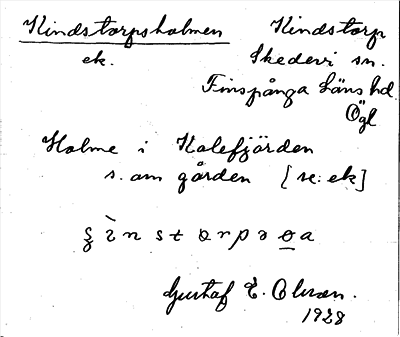 Kindstorpsholmen
ek.
Kindstorp
Skedevi sn.
Finspånga Läns hd
Ögl
Holme i Kolefjörden
s. om gården [se: ek]
Gustaf E. Olsson.
1928